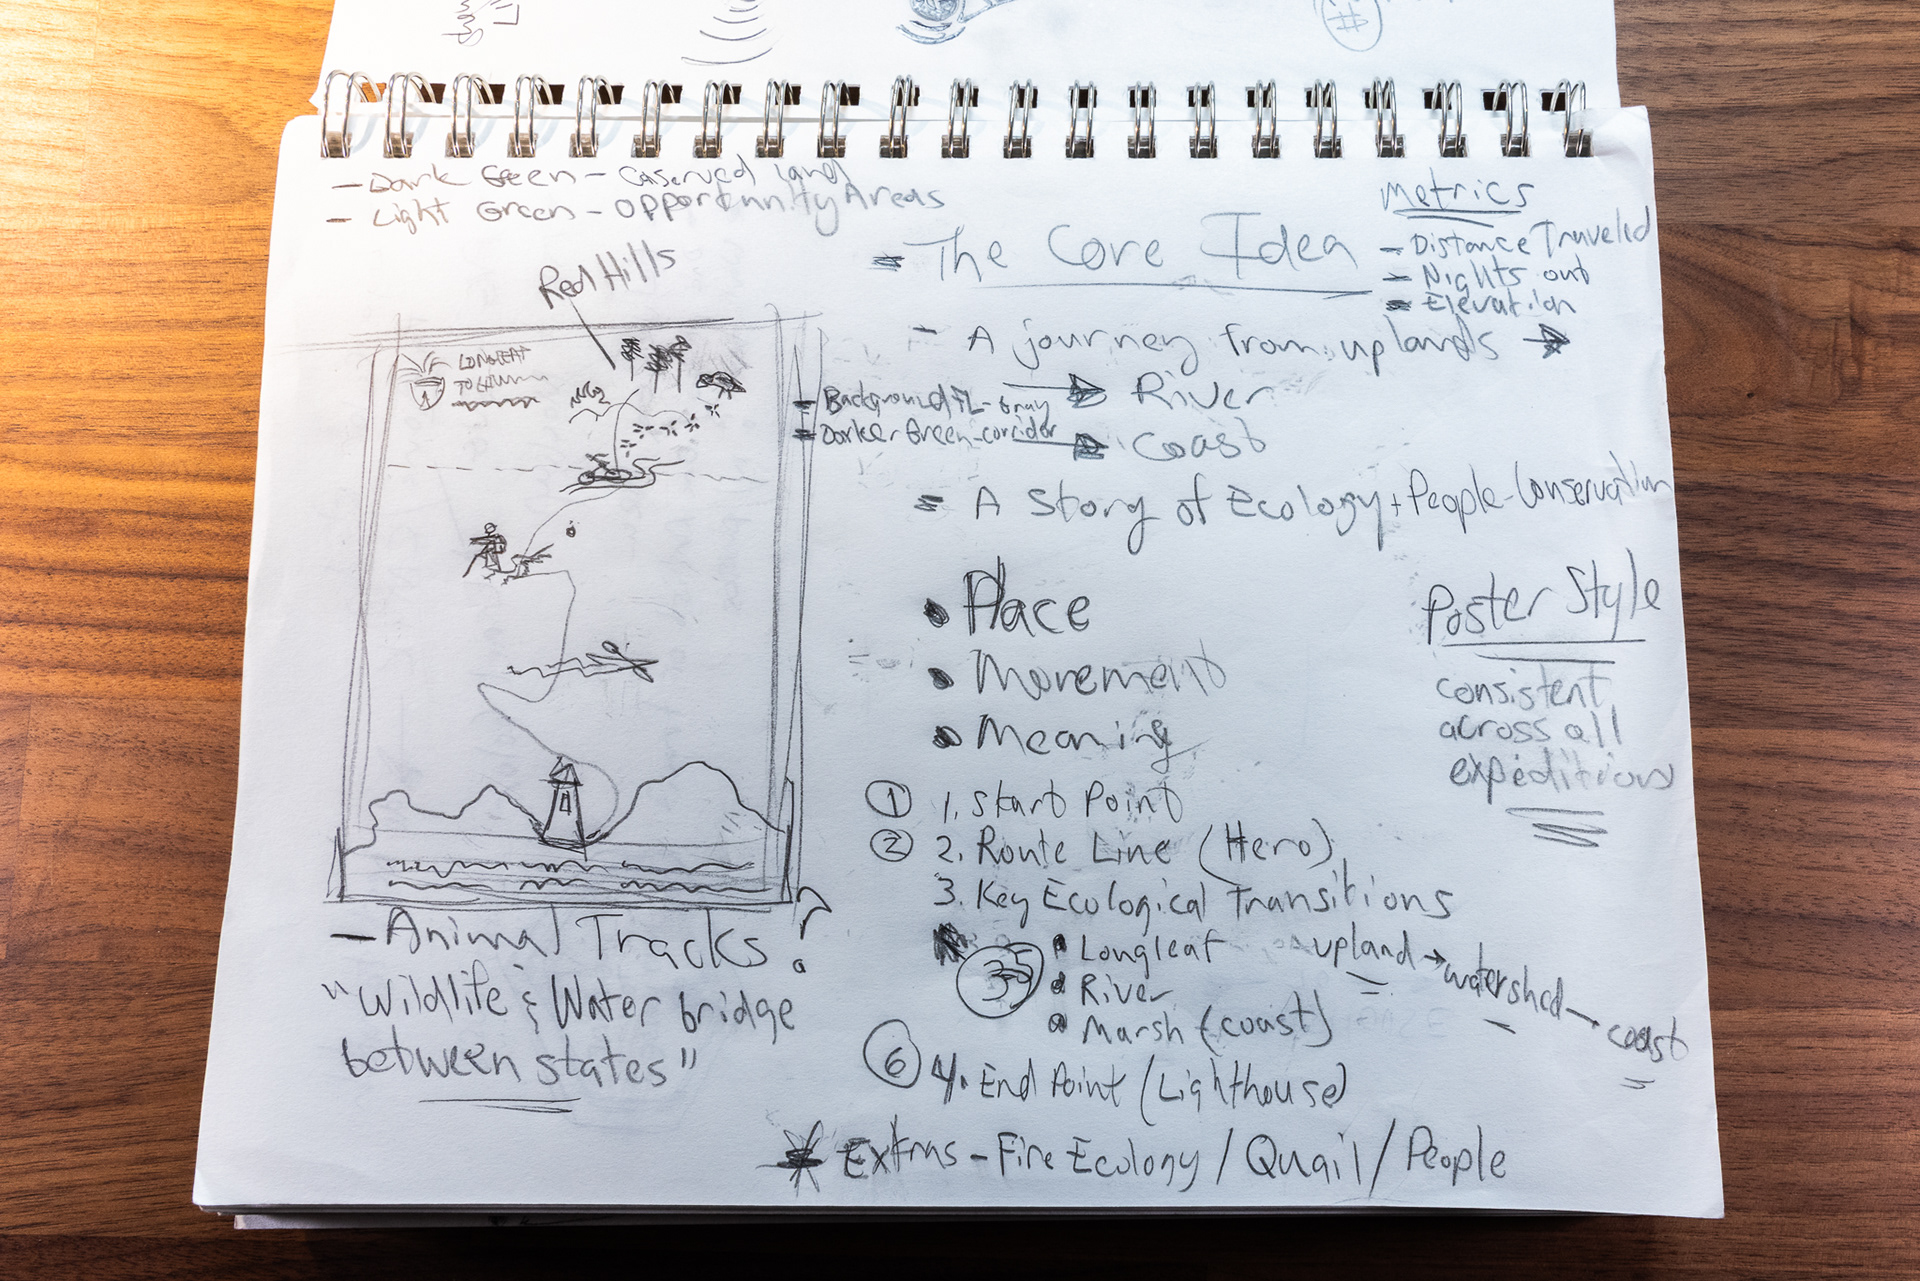 - Dark Green - Coserved land
- Light Green - Opportunity Areas
Red Hills
TO
- The Core Idea
Metrics
- Distance Traveled
- Nights out
- Elevation
- A journey from uplands →
→ River
→ Coast
- Background FL - Gray
- Darker Green - corridor
- A Story of Ecology + People - Conservation
• Place
• Movement
• Meaning
Poster Style
consistent
across all
expeditions
① 1. Start Point
② 2. Route Line (Hero)
3. Key Ecological Transitions
• Longleaf
• River
• Marsh (coast)
upland → watershed → coast
⑥ 4. End Point (Lighthouse)
* Extras - Fire Ecology / Quail / People
- Animal Tracks ?
"Wildlife & Water bridge
between states"